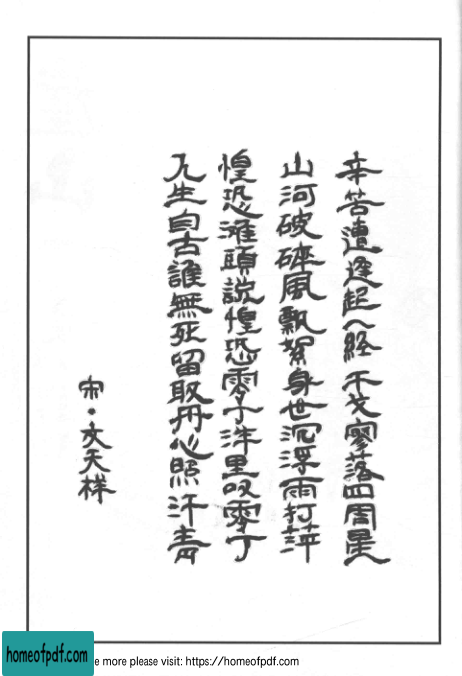 辛苦遭逢起一經干戈寥落四周星
山河破碎風飄絮身世沉浮雨打萍
惶恐灘頭說惶恐零丁洋里叹零丁
人生自古誰無死留取丹心照汗青
宋·文天祥
homeofpdf.com
e more please visit: https://homeofpdf.com